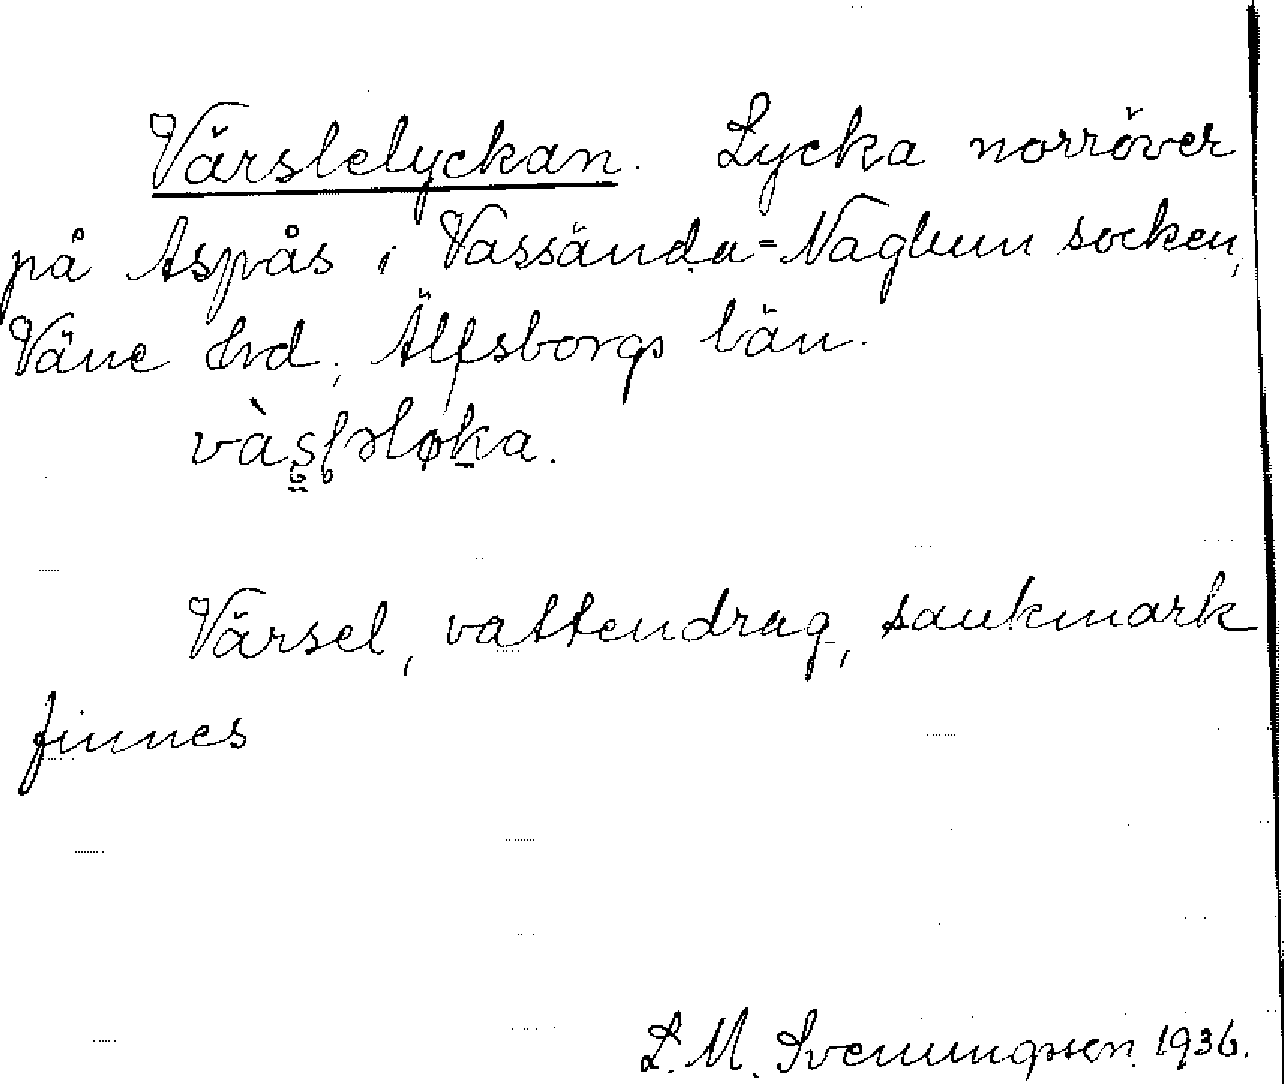 Värslelyckan. Lycka norröver
på Aspås i Vassända-Naglum socken,
Väne Hrd, Älfsborgs län.
Värsel, vattendrag, sankmark
finnes
L. M. Svenungsson. 1936.